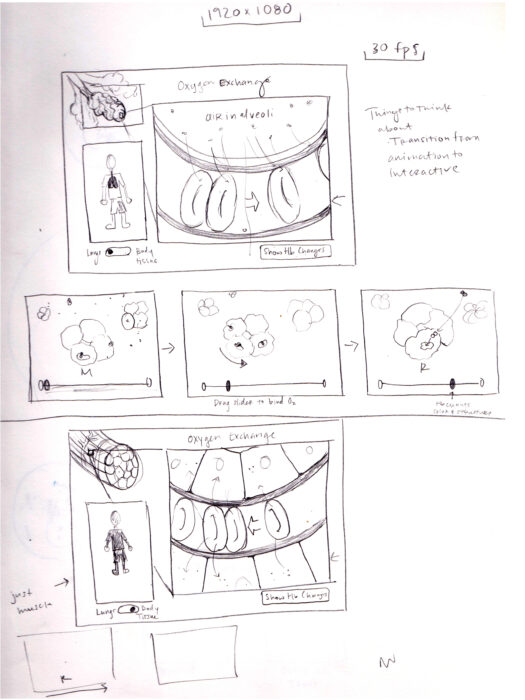 1920x1080
30 fps
Oxygen Exchange
air in alveoli
Things to Think
about
Transition from
animation to
Interactive
Lungs
Body
tissue
Show Hb Changes
M
R
Drag slider to bind O2
Oxygen Exchange
just
muscle
Lungs
Body
Tissue
Show Hb Changes
R